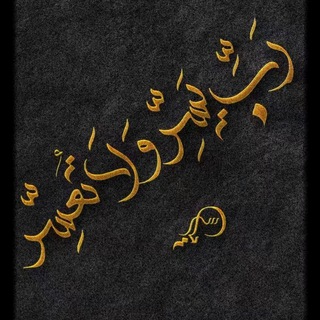 رَبِّ يَسِّرْ وَلَا تُعَسِّرْ